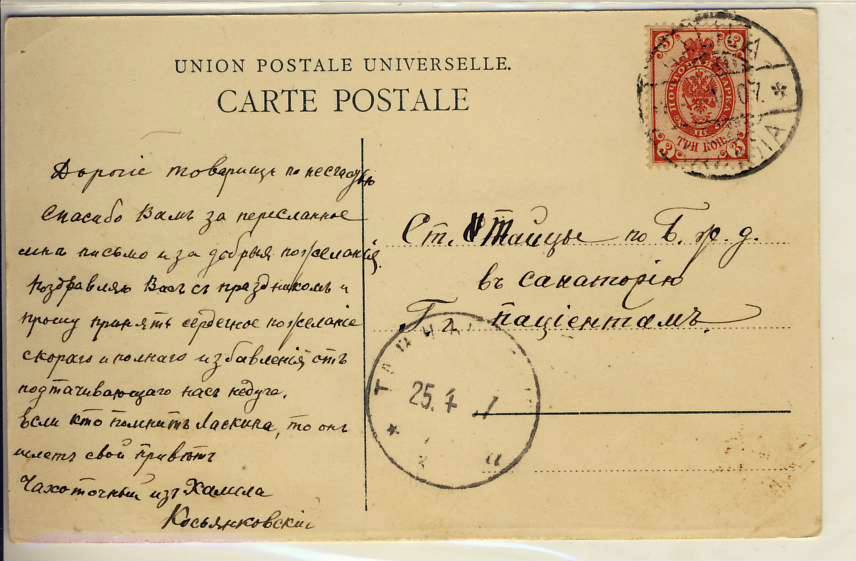 UNION POSTALE UNIVERSELLE.
CARTE POSTALE
Дорогіе товарищи по несчастью
Спасибо Вамъ за пересланное
мнѣ письмо и за добрыя пожеланія.
Поздравляю Васъ съ праздникомъ и
прошу принять сердечное пожеланіе
скораго и полнаго избавленія отъ
подтачивающаго насъ недуга.
Если кто помнитъ Ласкина, то онъ
шлетъ свой привѣтъ
Чахоточный изъ Халила
Косьянковскій
Ст. Тайцы по Б. ж. д.
въ санаторію
Гг. паціентамъ.
ТРИ КОП.
3 3 3 3
07.
ТАИЦЫ
25. 4 7
а